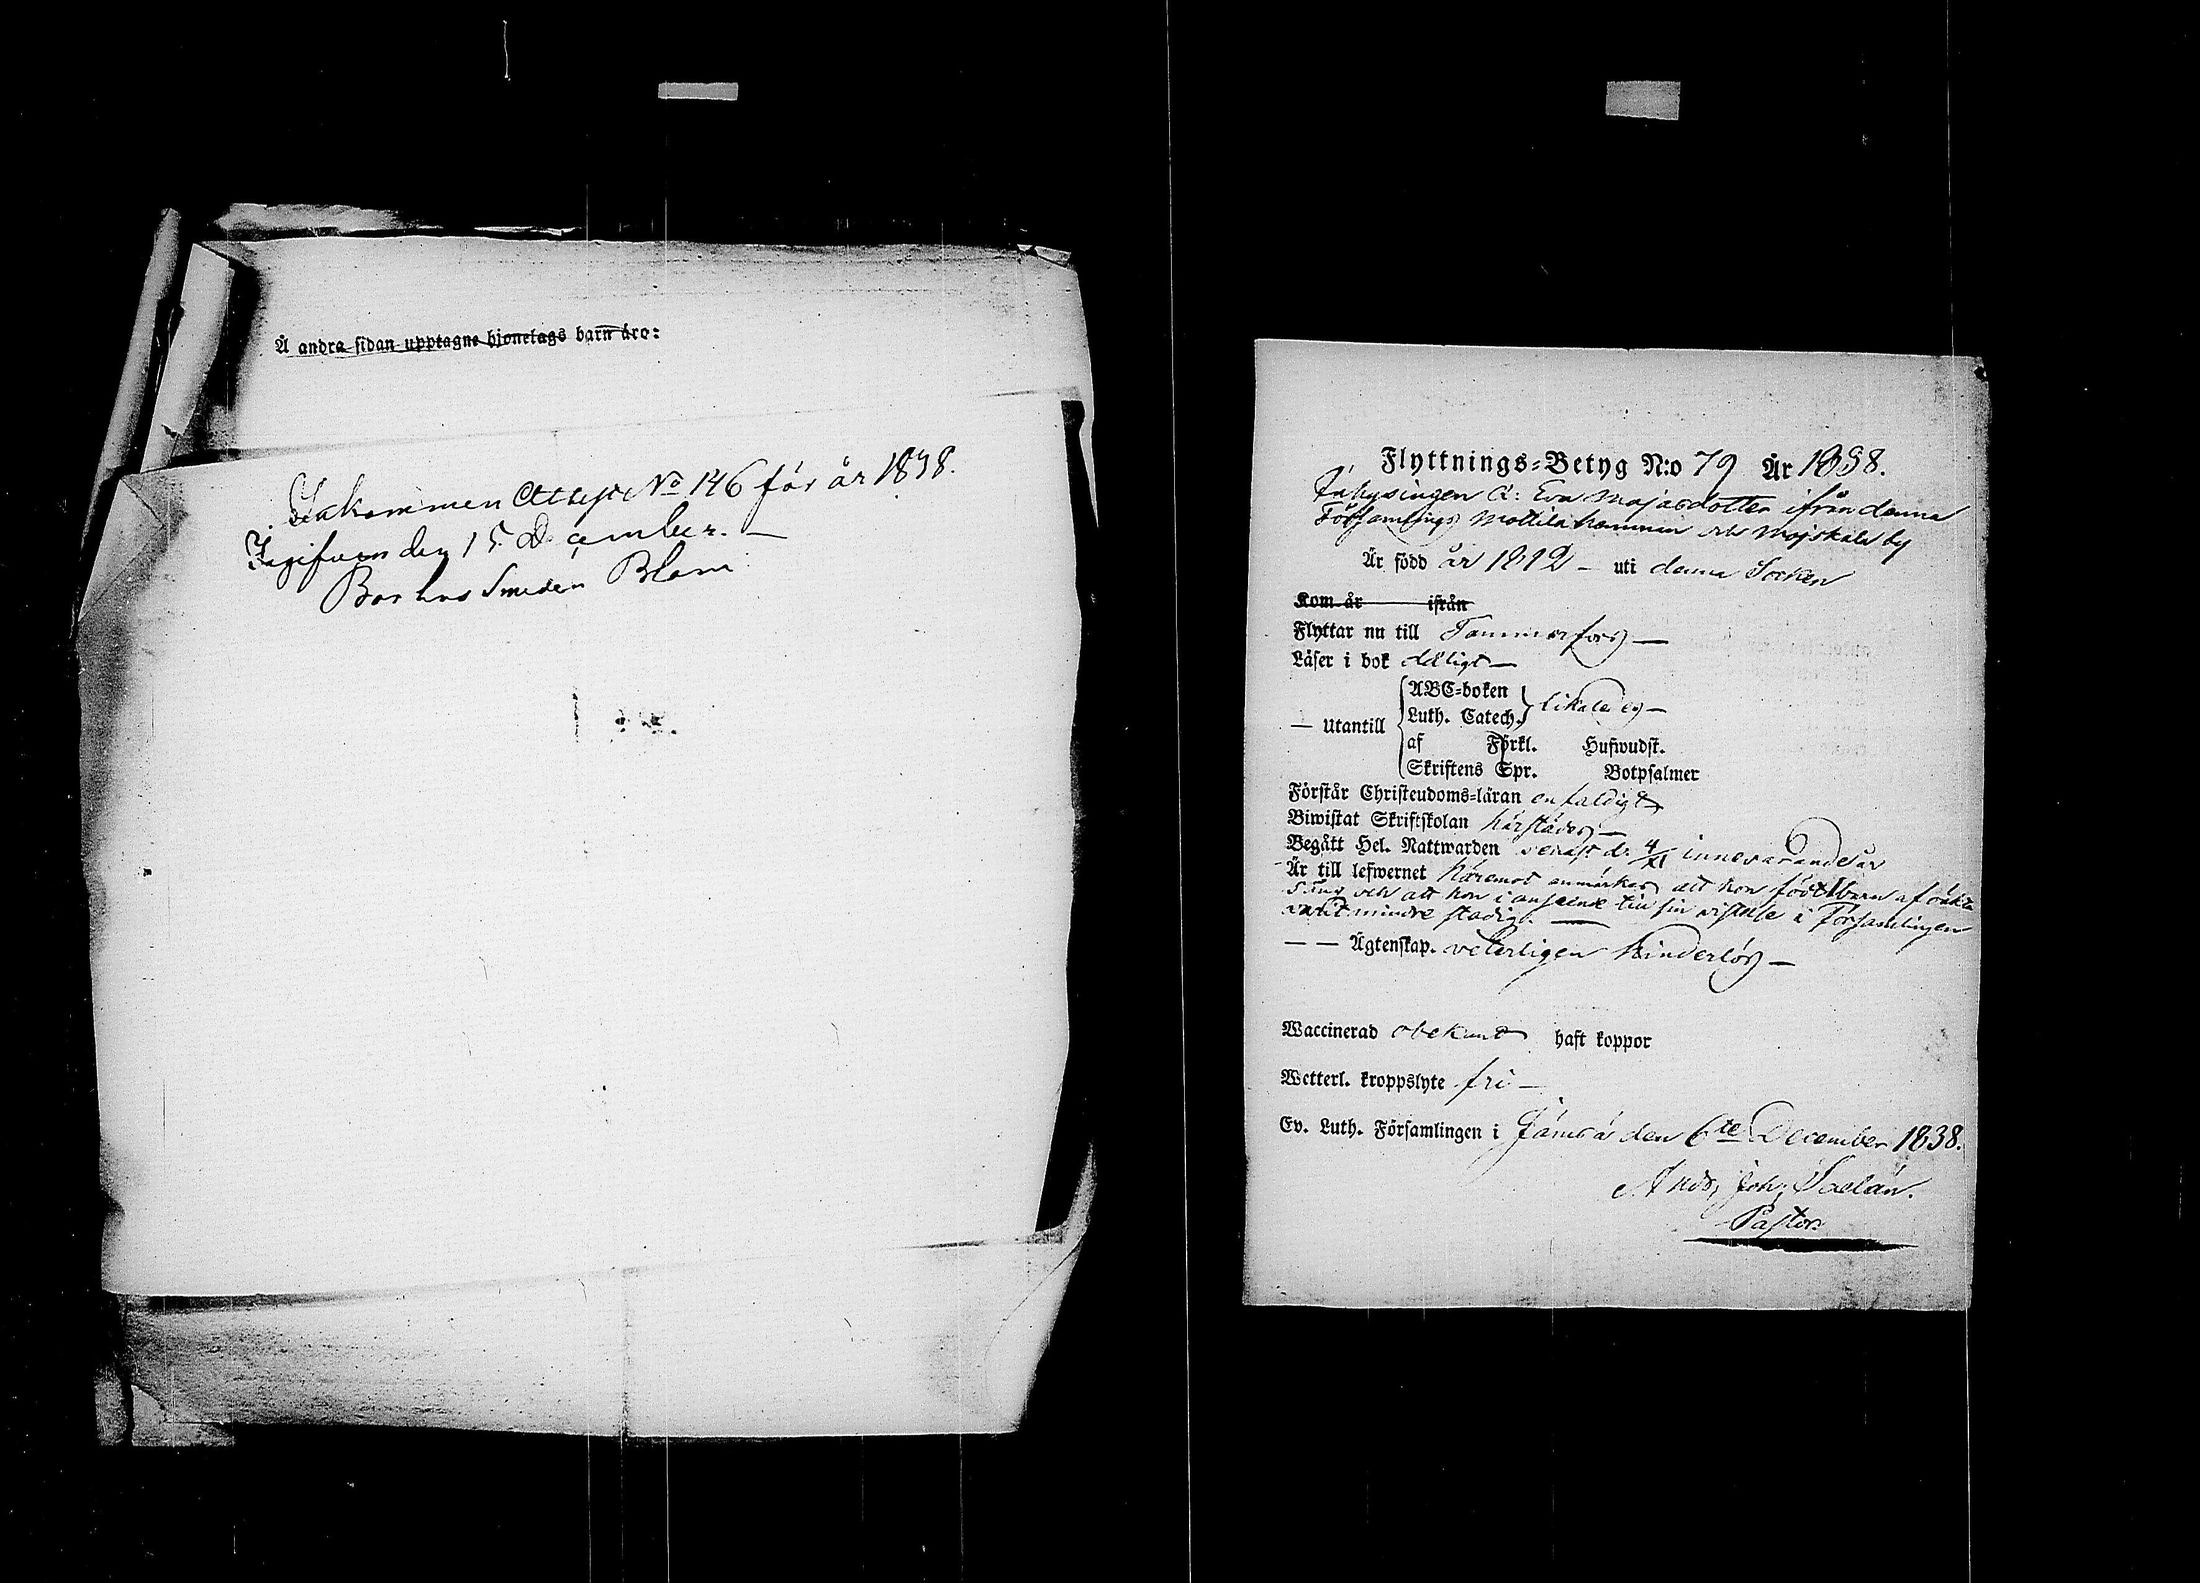 Å andra sidan upptagne hionelags barn äro:
Inkommen Attest No 146 för år 1838.
Ingifven den 15 December. —
Bor hos Smeden Blom
Flyttnings-Betyg N:o 79 År 1838.
Inhysingen Q: Eva Majasdotter ifrån denna
Församlings Mattila hemman och Mojskala by
Är född år 1812 — uti denna Socken
Kom år ifrån
Flyttar nu till Tammerfors —
Läser i bok dåligt —
— Utantill
ABC-boken
Luth. Catech. likaledes —
af Förkl. Hufwudst.
Skriftens Spr. Botpsalmer
Förstår Christendoms-läran enfaldigt
Biwistat Skriftskolan härstädes —
Begått Hel. Nattwarden senast d. 4/XI innevarande år
Är till lefwernet häremot anmärkes att hon födt 1 barn af oäkta
säng och att hon i anseende till sin vistelse i Församlingen
varit mindre stadig. —
— — Ägtenskap. veterligen hinderlös —
Waccinerad obekant haft koppor
Wetterl. kroppslyte fri —
Ev. Luth. Församlingen i Jämsä den 6te December 1838.
Ands Joh. Saelan.
Pastor